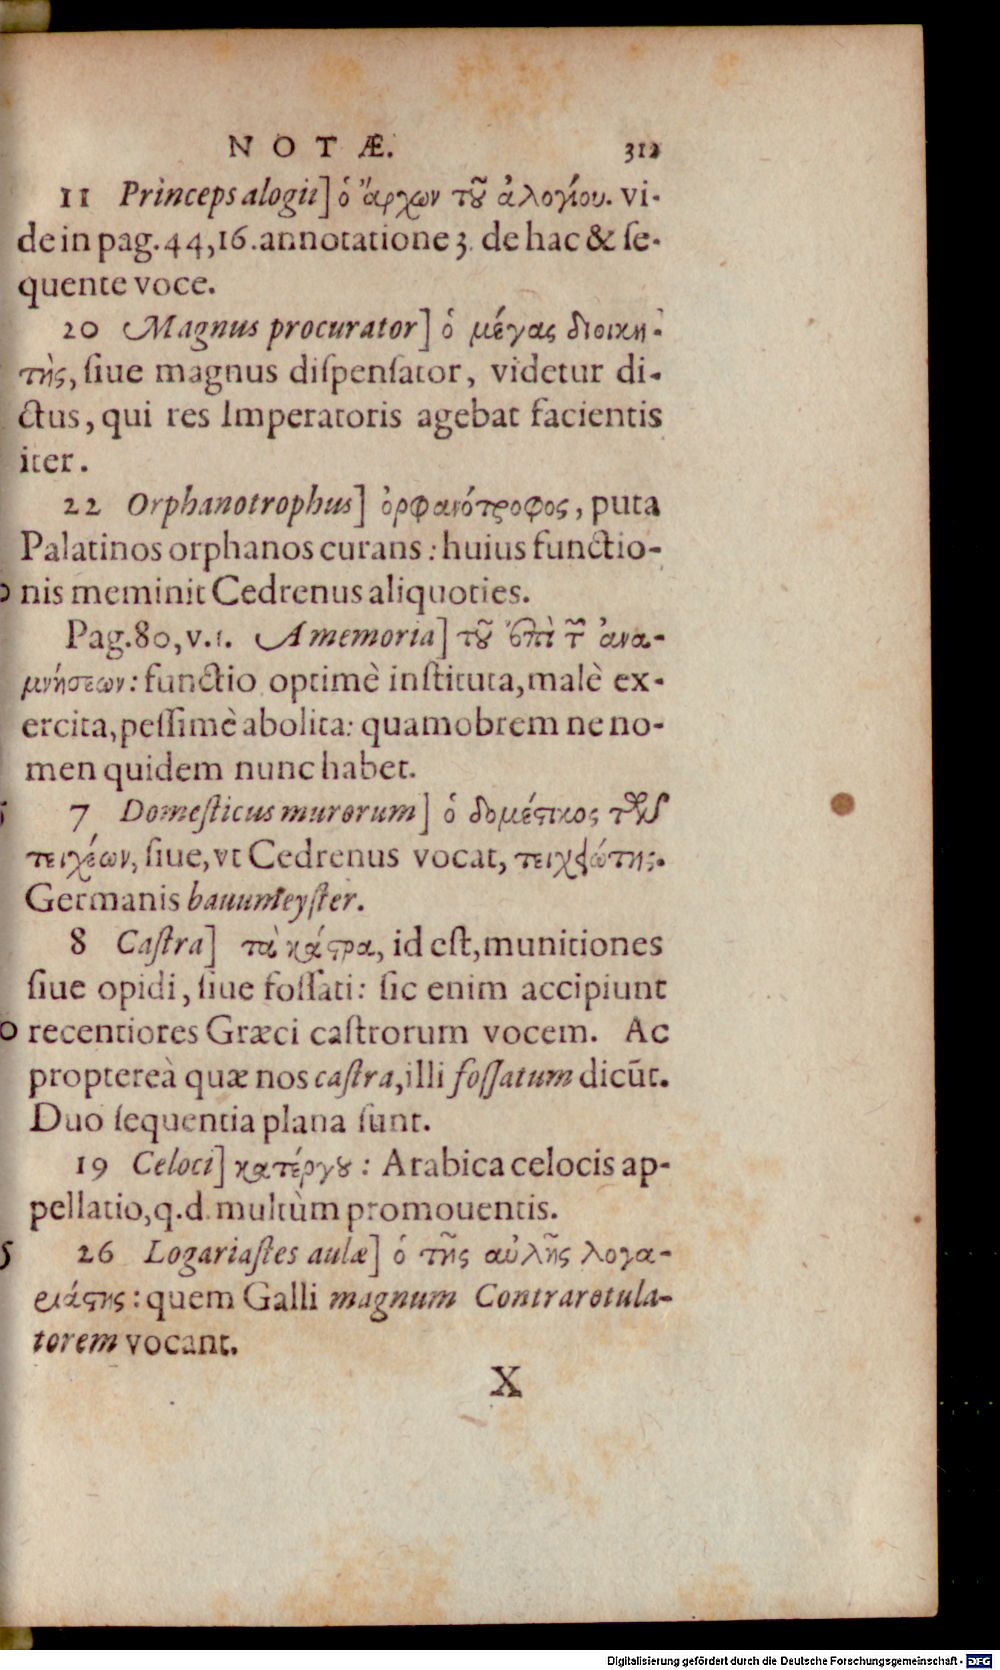 NOTÆ. 312
11 Princeps alogii] ὁ ἄρχων τοῦ ἀλογίου. vi-
de in pag. 44,16. annotatione 3. de hac & ſe-
quente voce.
20 Magnus procurator] ὁ μέγας διοικη-
τὴς, ſiue magnus diſpenſator, videtur di-
ctus, qui res Imperatoris agebat facientis
iter.
22 Orphanotrophus] ὀρφανότροφος, puta
Palatinos orphanos curans: huius functio-
nis meminit Cedrenus aliquoties.
Pag. 80, v. 1. A memoria] τοῦ ἐπὶ τῶν ἀνα-
μνήσεων: functio optimè inſtituta, malè ex-
ercita, peſſimè abolita: quamobrem ne no-
men quidem nunc habet.
7 Domeſticus murorum] ὁ δομέστικος τῶν
τειχέων, ſiue, vt Cedrenus vocat, τειχεώτης.
Germanis bauumeyſter.
8 Caſtra] τὰ κάστρα, id eſt, munitiones
ſiue opidi, ſiue foſſati: ſic enim accipiunt
recentiores Græci caſtrorum vocem. Ac
proptereà quæ nos caſtra, illi foſſatum dicūt.
Duo ſequentia plana ſunt.
19 Celoci] κατέργου: Arabica celocis ap-
pellatio, q.d. multùm promouentis.
26 Logariaſtes aulæ] ὁ τῆς αὐλῆς λογα-
ριάστης: quem Galli magnum Contrarotula-
torem vocant.
X
Digitalisierung gefördert durch die Deutsche Forschungsgemeinschaft - DFG